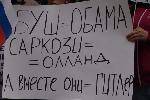 БУШ=ОБАМА
САРКОЗИ=
=ОЛЛАНД
А ВМЕСТЕ ОНИ-ГИТЛЕР